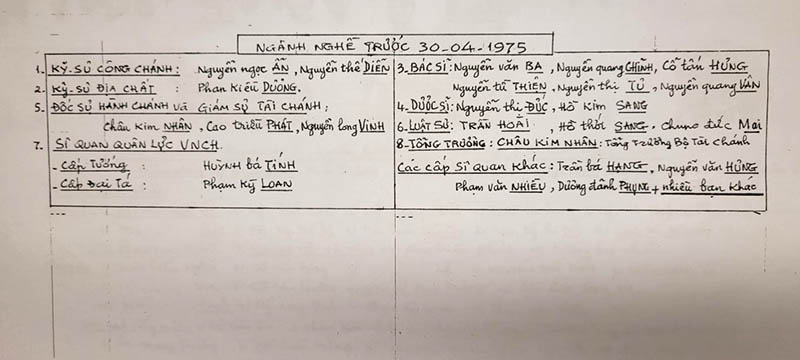 NGÀNH NGHỀ TRƯỚC 30-04-1975
1. KỸ-SƯ CÔNG CHÁNH: Nguyễn ngọc ẨN, Nguyễn thế DIỄN
2. KỸ-SƯ ĐỊA CHẤT : Phan Kiều DƯƠNG.
5. ĐỐC SỰ HÀNH CHÁNH và GIÁM SỰ TÀI CHÁNH:
Châu Kim NHÂN, Cao triều PHÁT, Nguyễn long VINH
7. SĨ QUAN QUÂN LỰC VNCH.
- Cấp Tướng : HUỲNH bá TÍNH
- Cấp Đại Tá : Phạm Kỳ LOAN
3. BÁC SĨ: Nguyễn văn BA, Nguyễn quang CHÍNH, Cô tấn HƯNG
Nguyễn tú THIÊN, Nguyễn thị TÚ, Nguyễn quang VÂN
4. DƯỢC SĨ: Nguyễn thị ĐỨC, Hồ Kim SANG
6. LUẬT SƯ: TRẦN HOÀI, Hồ thới SANG. Chung đắc Mai
8-TỔNG TRƯỞNG: CHÂU KIM NHÂN: Tổng Trưởng Bộ Tài Chánh
Các cấp SĨ QUAN KHÁC: Trần bá HẠNG, Nguyễn văn HÙNG
Phạm văn NHIỀU, Dương đánh PHỤNG + nhiều bạn Khác